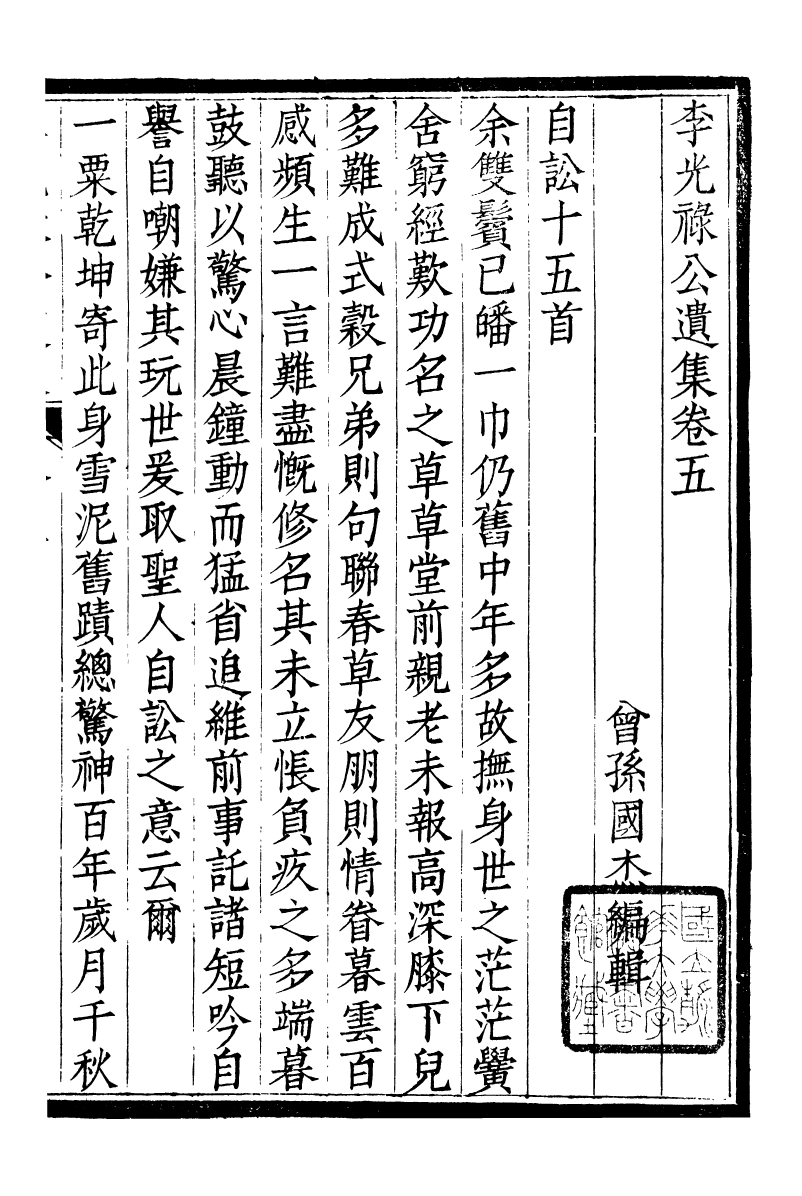 李光祿公遺集卷五
曾孫國杰編輯
自訟十五首
余雙鬢已皤一巾仍舊中年多故撫身世之茫茫黌
舍窮經歎功名之草草堂前親老未報高深膝下兒
多難成式穀兄弟則句聯春草友朋則情眷暮雲百
感頻生一言難盡慨修名其未立悵負疚之多端暮
鼓聽以驚心晨鐘動而猛省追維前事託諸短吟自
譽自嘲嫌其玩世爰取聖人自訟之意云爾
一粟乾坤寄此身雪泥舊蹟總驚神百年歲月千秋